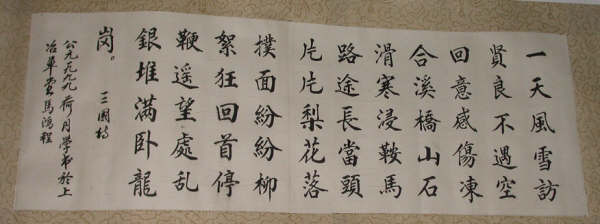 一天風雪訪
賢良不遇空
回意感傷凍
合溪橋山石
滑寒浸鞍馬
路途長當頭
片片梨花落
撲面紛紛柳
絮狂回首停
鞭遥望處亂
銀堆满卧龍
岗。 三國詩
公元一九九九荷月學弟於上
冶單 馬鴻程